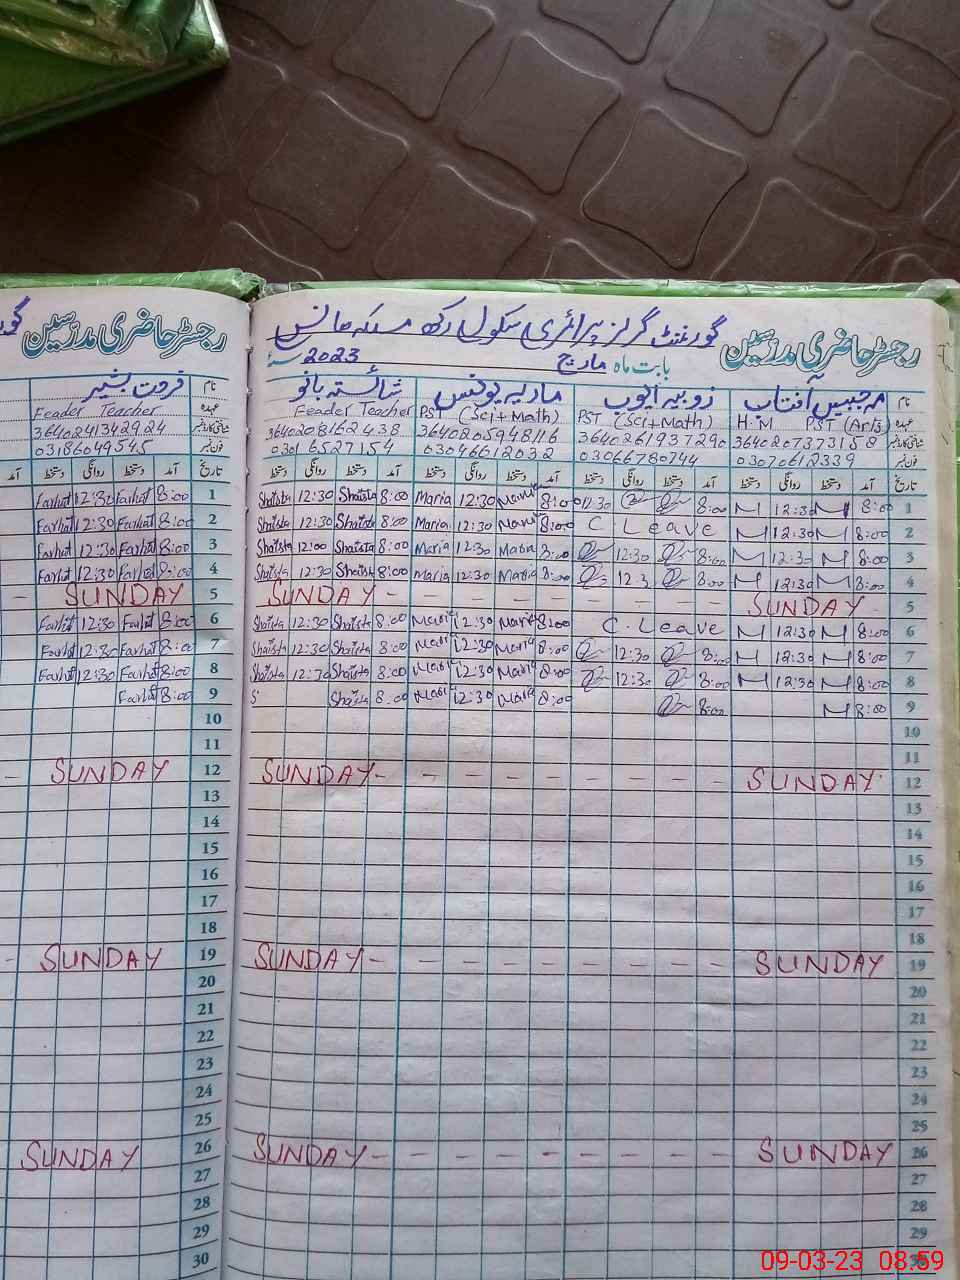 رجسٹر حاضری مدرسین گورنمنٹ گرلز پرائمری سکول رکھ رجسٹر حاضری مدرسین
بابت ماہ مارچ 2023
نام مہ جبیں آفتاب زوبیہ ایوب ماریہ یونس شائستہ بانو نام فرحت بشیر
عہدہ H.M PST (Arts) PST (Sci+Math) PST (Sci+Math) Feader Teacher عہدہ Feader Teacher
شناختی کارڈ نمبر 3640207373158 3640261937290 3640805948116 3640208162438 شناختی کارڈ نمبر 3640241342924
فون نمبر 03070612339 03066780744 03046612032 0301 6527154 فون نمبر 03186049545
تاریخ آمد دستخط روانگی دستخط آمد دستخط روانگی دستخط آمد دستخط روانگی دستخط آمد دستخط روانگی دستخط تاریخ آمد دستخط روانگی دستخط آمد
Farhat 12:30 Farhat 8:00 1 Shaista 12:30 Shaista 8:00 Maria 12:30 Maria 8:00 12:30 8:00 M 12:30 M 8:00 1
Farhat 12:30 Farhat 8:00 2 Shaista 12:30 Shaista 8:00 Maria 12:30 Maria 8:00 C Leave M 12:30 M 8:00 2
Farhat 12:30 Farhat 8:00 3 Shaista 12:00 Shaista 8:00 Maria 12:30 Maria 8:00 12:30 8:00 M 12:30 M 8:00 3
Farhat 12:30 Farhat 8:00 4 Shaista 12:30 Shaista 8:00 Maria 12:30 Maria 8:00 12:3 8:00 M 12:30 M 8:00 4
- SUNDAY 5 SUNDAY - - - - - - - - - SUNDAY - 5
Farhat 12:30 Farhat 8:00 6 Shaista 12:30 Shaista 8:00 Maria 12:30 Maria 8:00 C. Leave M 12:30 M 8:00 6
Farhat 12:30 Farhat 8:00 7 Shaista 12:30 Shaista 8:00 Maria 12:30 Maria 8:00 12:30 8:00 M 12:30 M 8:00 7
Farhat 12:30 Farhat 8:00 8 Shaista 12:30 Shaista 8:00 Maria 12:30 Maria 8:00 12:30 8:00 M 12:30 M 8:00 8
Farhat 8:00 9 S Shaista 8:00 Maria 12:30 Maria 8:00 8:00 M 8:00 9
10 10
11 11
- SUNDAY 12 SUNDAY - - - - - - - - - - SUNDAY 12
13 13
14 14
15 15
16 16
17 17
18 18
- SUNDAY 19 SUNDAY - - - - - - - - - - SUNDAY 19
20 20
21 21
22 22
23 23
24 24
25 25
SUNDAY 26 SUNDAY - - - - - - - - - - SUNDAY 26
27 27
28 28
29 29
30 30
09-03-23 08:59